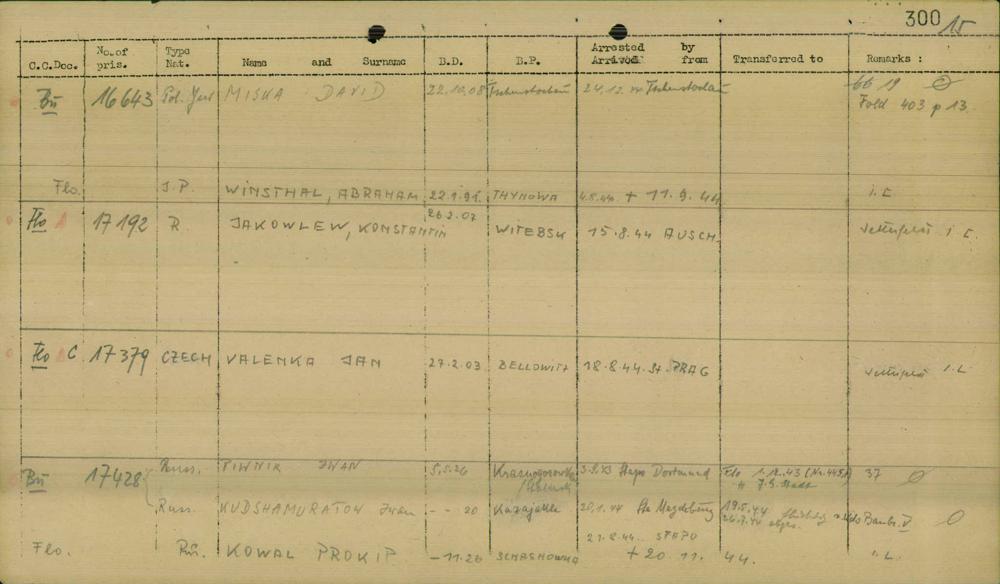 300 15
C.C.Doc. No. of pris. Type Nat. Name and Surname B.D. B.P. Arrested by Arrived from Transferred to Remarks :
Bu 16643 Pol. Jew MISKA DAVID 22.10.08 Tschenstochau 24.12.44 Tschenstochau 66 19
Fold 403 p 13.
Flo. J.P. WINSTHAL, ABRAHAM 22.1.91. THYNOWA 4.8.44. + 11.9.44 i.L
Flo A 17192 R. JAKOWLEW, KONSTANTIN 26.2.07 WITEBSK 15.8.44 AUSCH. i.L.
Flo C 17379 CZECH VALENKA JAN 27.2.03 BELLOWITZ 18.8.44. St. PRAG i.L
Bu 17428 Russ. PIWNIK IWAN 5.5.26 3.9.43 Stapo Dortmund Flo 1.12.43 37
Russ. KUDSHAMURATOW Iwan - - 20 20.1.44 Sta Magdeburg 19.5.44
Flo. Ru. KOWAL PROKIP -11.26 SCHASHOWKA 21.8.44. STAPO + 20.11.44. i.L.